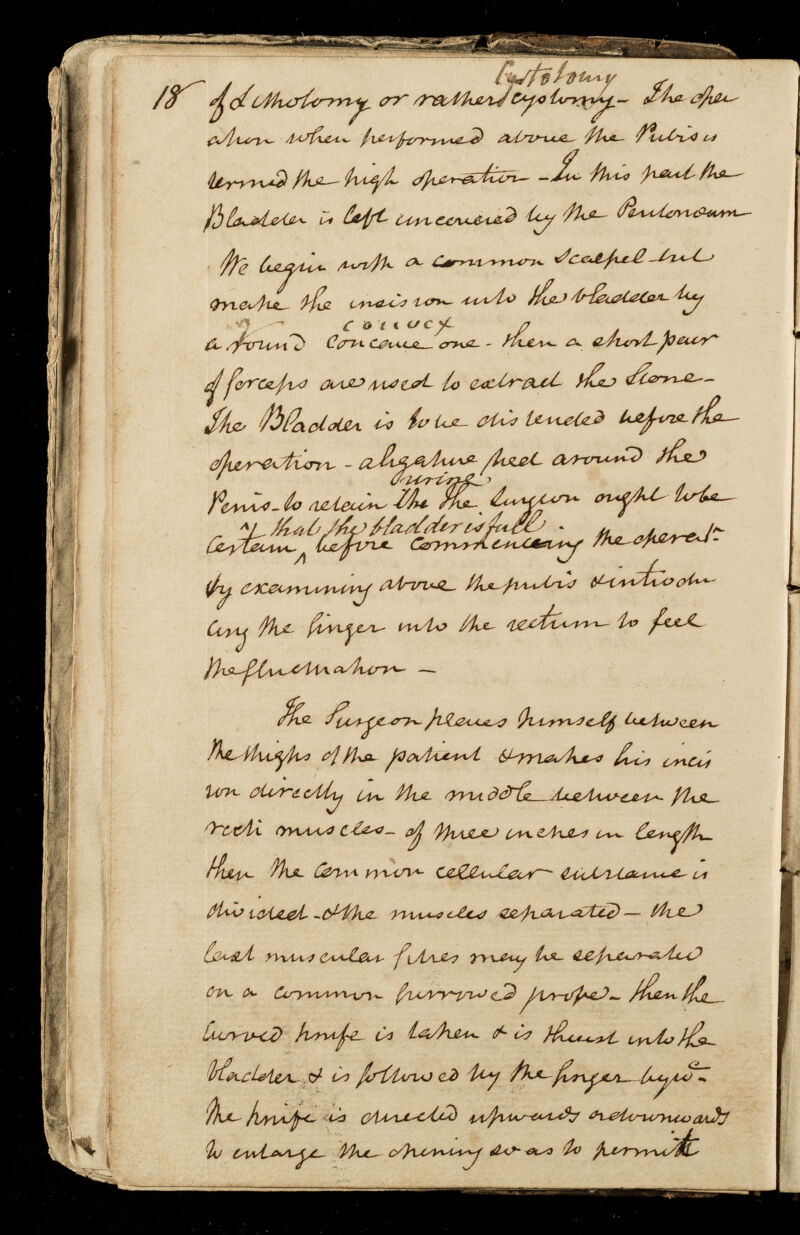 Cystotomy
18 of Lithotomy or rather cystomy - The oper
ation when performed above the Pubis is
termed the high operation - In this part the
Bladder is left uncovered by the Peritoneum
We begin with a common scalpel but
make the incision into the bladder by
convex
a round concave one - then a short pair
of forceps are used to extract the stone -
The Bladder is to be distended before the
operation - a ligature tied around the
urine
Penis - to retain the the surgeon ought to be
that the bladder is full
certain ^ before commencing the operatn
by examining above the pubis & introdu
cing the finger into the rectum to feel
the fluctuation -
The Surgeon places himself between
the thighs of the patient & makes his incis
ion directly in the middle between the
recti muscles - of three inches in length
then the common cellular substance is
divided - & the muscles separated - the
last muscular fibres may be separated
on a common furrowed probe - then the
curved knife is taken & is thrust into the
bladder & is followed by the finger by wc -
the knife is directed upwards or downwards
to enlarge the opening so as to permitt